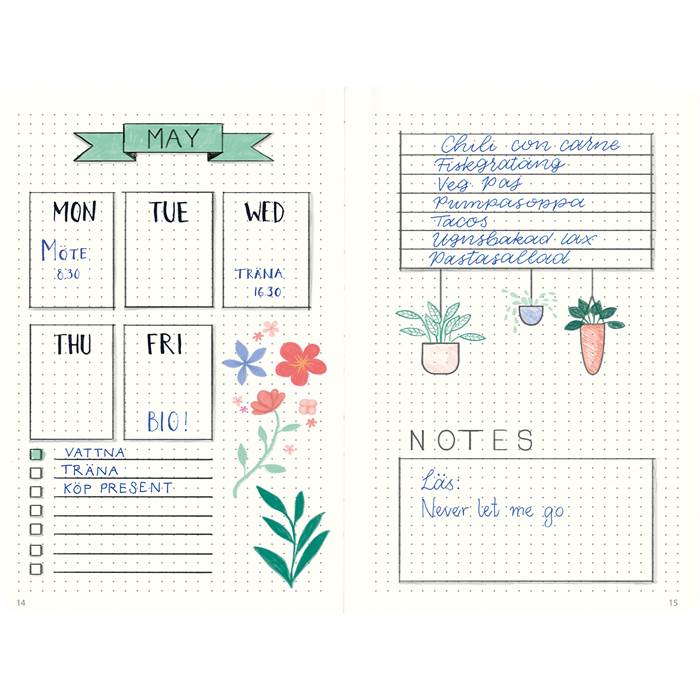 MAY
MON
TUE
WED
MÖTE
8.30
TRÄNA
16.30
THU
FRI
BIO!
VATTNA
TRÄNA
KÖP PRESENT
14
Chili con carne
Fiskgratäng
Veg. Paj
Pumpasoppa
Tacos
Ugnsbakad lax
Pastasallad
NOTES
Läs:
Never let me go
15